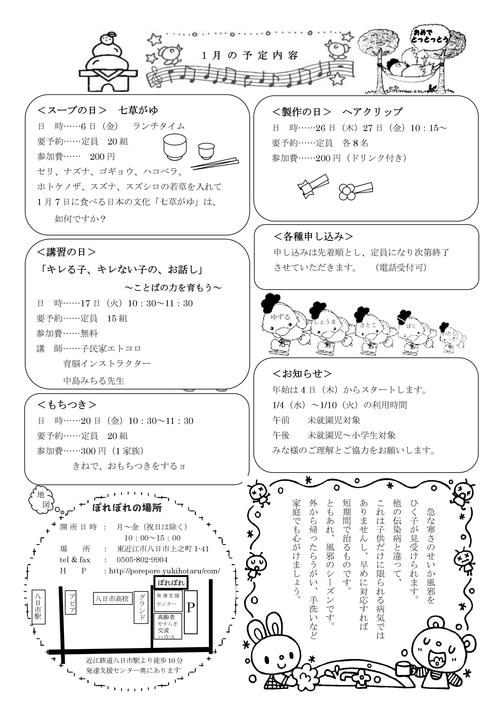 1月の予定内容
おめで
とっとっとう
＜スープの日＞　七草がゆ
日　時……6日（金）　ランチタイム
要予約……定員　20組
参加費……　200円
セリ、ナズナ、ゴギョウ、ハコベラ、
ホトケノザ、スズナ、スズシロの若草を入れて
1月7日に食べる日本の文化「七草がゆ」は、
如何ですか？
＜講習の日＞
「キレる子、キレない子の、お話し」
～ことばの力を育もう～
日　時……17日（火）10：30～11：30
要予約……定員　15組
参加費……無料
講　師……子民家エトコロ
育脳インストラクター
中島みちる先生
＜もちつき＞
日　時……20日（金）10：30～11：30
要予約……定員　20組
参加費……300円（1家族）
きねで、おもちつきをするョ
＜製作の日＞　ヘアクリップ
日　時……26日（木）27日（金）10：15～
要予約……定員　各8名
参加費……200円（ドリンク付き）
＜各種申し込み＞
申し込みは先着順とし、定員になり次第終了
させていただきます。　（電話受付可）
ゆずる
しょうま
さとこ
ぼく
＜お知らせ＞
年始は4日（木）からスタートします。
1/4（水）～1/10（火）の利用時間
午前　　未就園児対象
午後　　未就園児～小学生対象
みな様のご理解とご協力をお願いします。
地図
ぽれぽれの場所
開所日時：　月～金（祝日は除く）
10：00～15：00
場　　所　：　東近江市八日市上之町1-41
tel＆fax　：　0505-802-9904
H　　P　：http://porepore.yukihotaru.com/
八日市駅
アピア
八日市高校
グランド
ぽれぽれ
発達支援
センター
高齢者
やすらぎ
交流
ハウス
P
近江鉄道八日市駅より徒歩10分
発達支援センター奥にあります
急な寒さのせいか風邪を
ひく子が見受けられます。
他の伝染病と違って、
これは子供だけに限られる病気では
ありませんし、早めに対応すれば
短期間で治るものです。
ともあれ、風邪のシーズンです。
外から帰ったらうがい、手洗いなど
家庭でも心がけましょう。